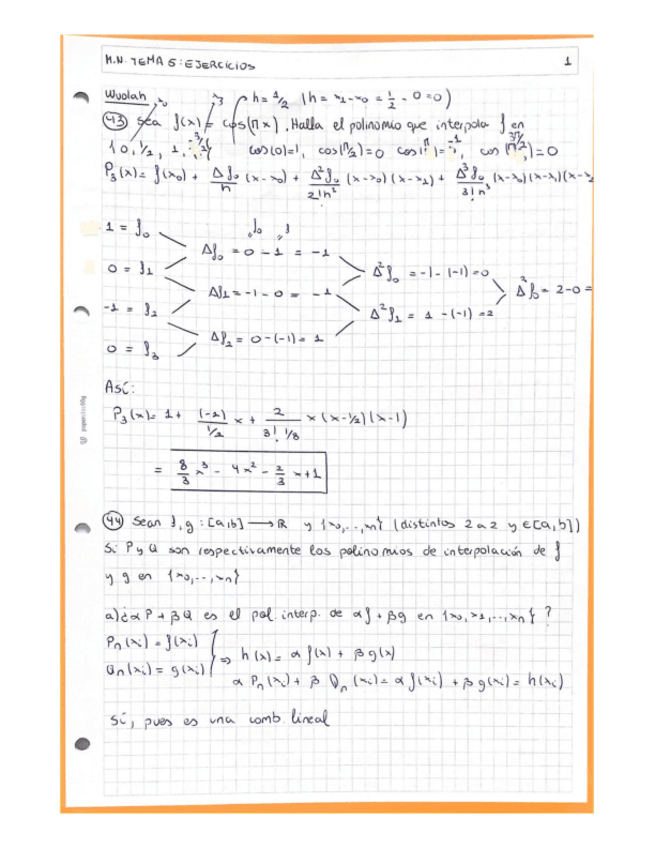 M.N. TEMA 5: EJERCICIOS 1
Wuolah x₀ x₃ h = 1/2 (h = x₁-x₀ = 1/2 - 0 = 0)
43) Sea f(x) = cos(πx). Halla el polinomio que interpola f en
{0, 1/2, 1, 3/2} cos(0)=1, cos(π/2)=0 cos(π)=-1, cos(3π/2)=0
P₃(x)= f(x₀) + Δf₀/h (x-x₀) + Δ²f₀/2!h² (x-x₀)(x-x₁) + Δ³f₀/3!h³ (x-x₀)(x-x₁)(x-x₂
1 = f₀
Δf₀ = 0 - 1 = -1
0 = f₁ Δ²f₀ = -1 - (-1) = 0
Δf₁ = -1 - 0 = -1 Δ³f₀ = 2-0 =
-1 = f₂ Δ²f₁ = 1 - (-1) = 2
Δf₂ = 0 - (-1) = 1
0 = f₃
Así:
P₃(x) = 1 + (-1)/1/2 x + 2/3! 1/8 x (x-1/2)(x-1)
= 8/3 x³ - 4x² - 2/3 x + 1
44) Sean f, g : [a,b] → ℝ y {x₀,...,xₙ} (distintos 2 a 2 y ∈ [a,b])
Si P y Q son respectivamente los polinomios de interpolación de f
y g en {x₀,...,xₙ}
a) ¿αP + βQ es el pol. interp. de αf + βg en {x₀, x₁,..., xₙ}?
Pₙ(xᵢ) = f(xᵢ)
⇒ h(x) = α f(x) + β g(x)
Qₙ(xᵢ) = g(xᵢ)
α Pₙ(xᵢ) + β Qₙ(xᵢ) = α f(xᵢ) + β g(xᵢ) = h(xᵢ)
Sí, pues es una comb. lineal